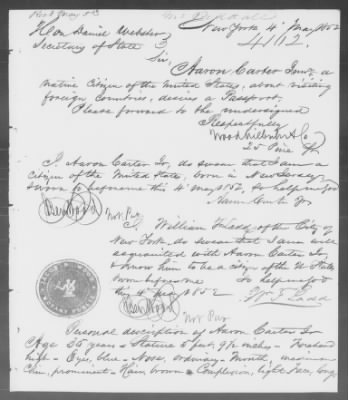 New York 4 May 1852
Hon Daniel Webster
Secretary of State
4102
Sir,
Aaron Carter Junr, a
native Citizen of the United States, about visiting
foreign Countries, desires a Passport.
Please forward to the undersigned
Respectfully
25 Pine St
I Aaron Carter Jr, do swear that I am a
Citizen of the United States, born in New Jersey
sworn to before me this 4 May 1852, So help me God
Aaron Carter Jr
Not. Pub
I William Ladd of the City of
New York, do swear that I am well
acquainted with Aaron Carter Jr
& know him to be a citizen of the U States
sworn before me So help me God
this 4 May 1852
Wm Ladd
Not. Pub
Personal description of Aaron Carter Jr
Age 35 years - Stature 5 feet 9 1/2 inches - Forehead
high - Eyes, blue - Nose, ordinary - Mouth, medium
Chin, prominent - Hair, brown - Complexion, light Face, long